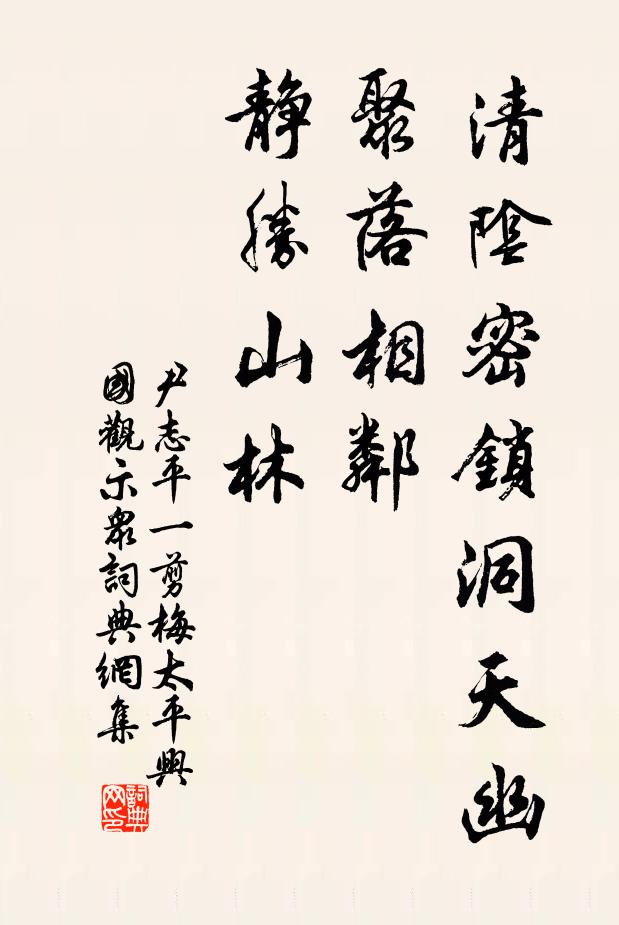 清陰密鎖洞天幽
聚落相鄰
靜勝山林
尹志平一剪梅太平興
國觀示眾詞典網集
詞典网印